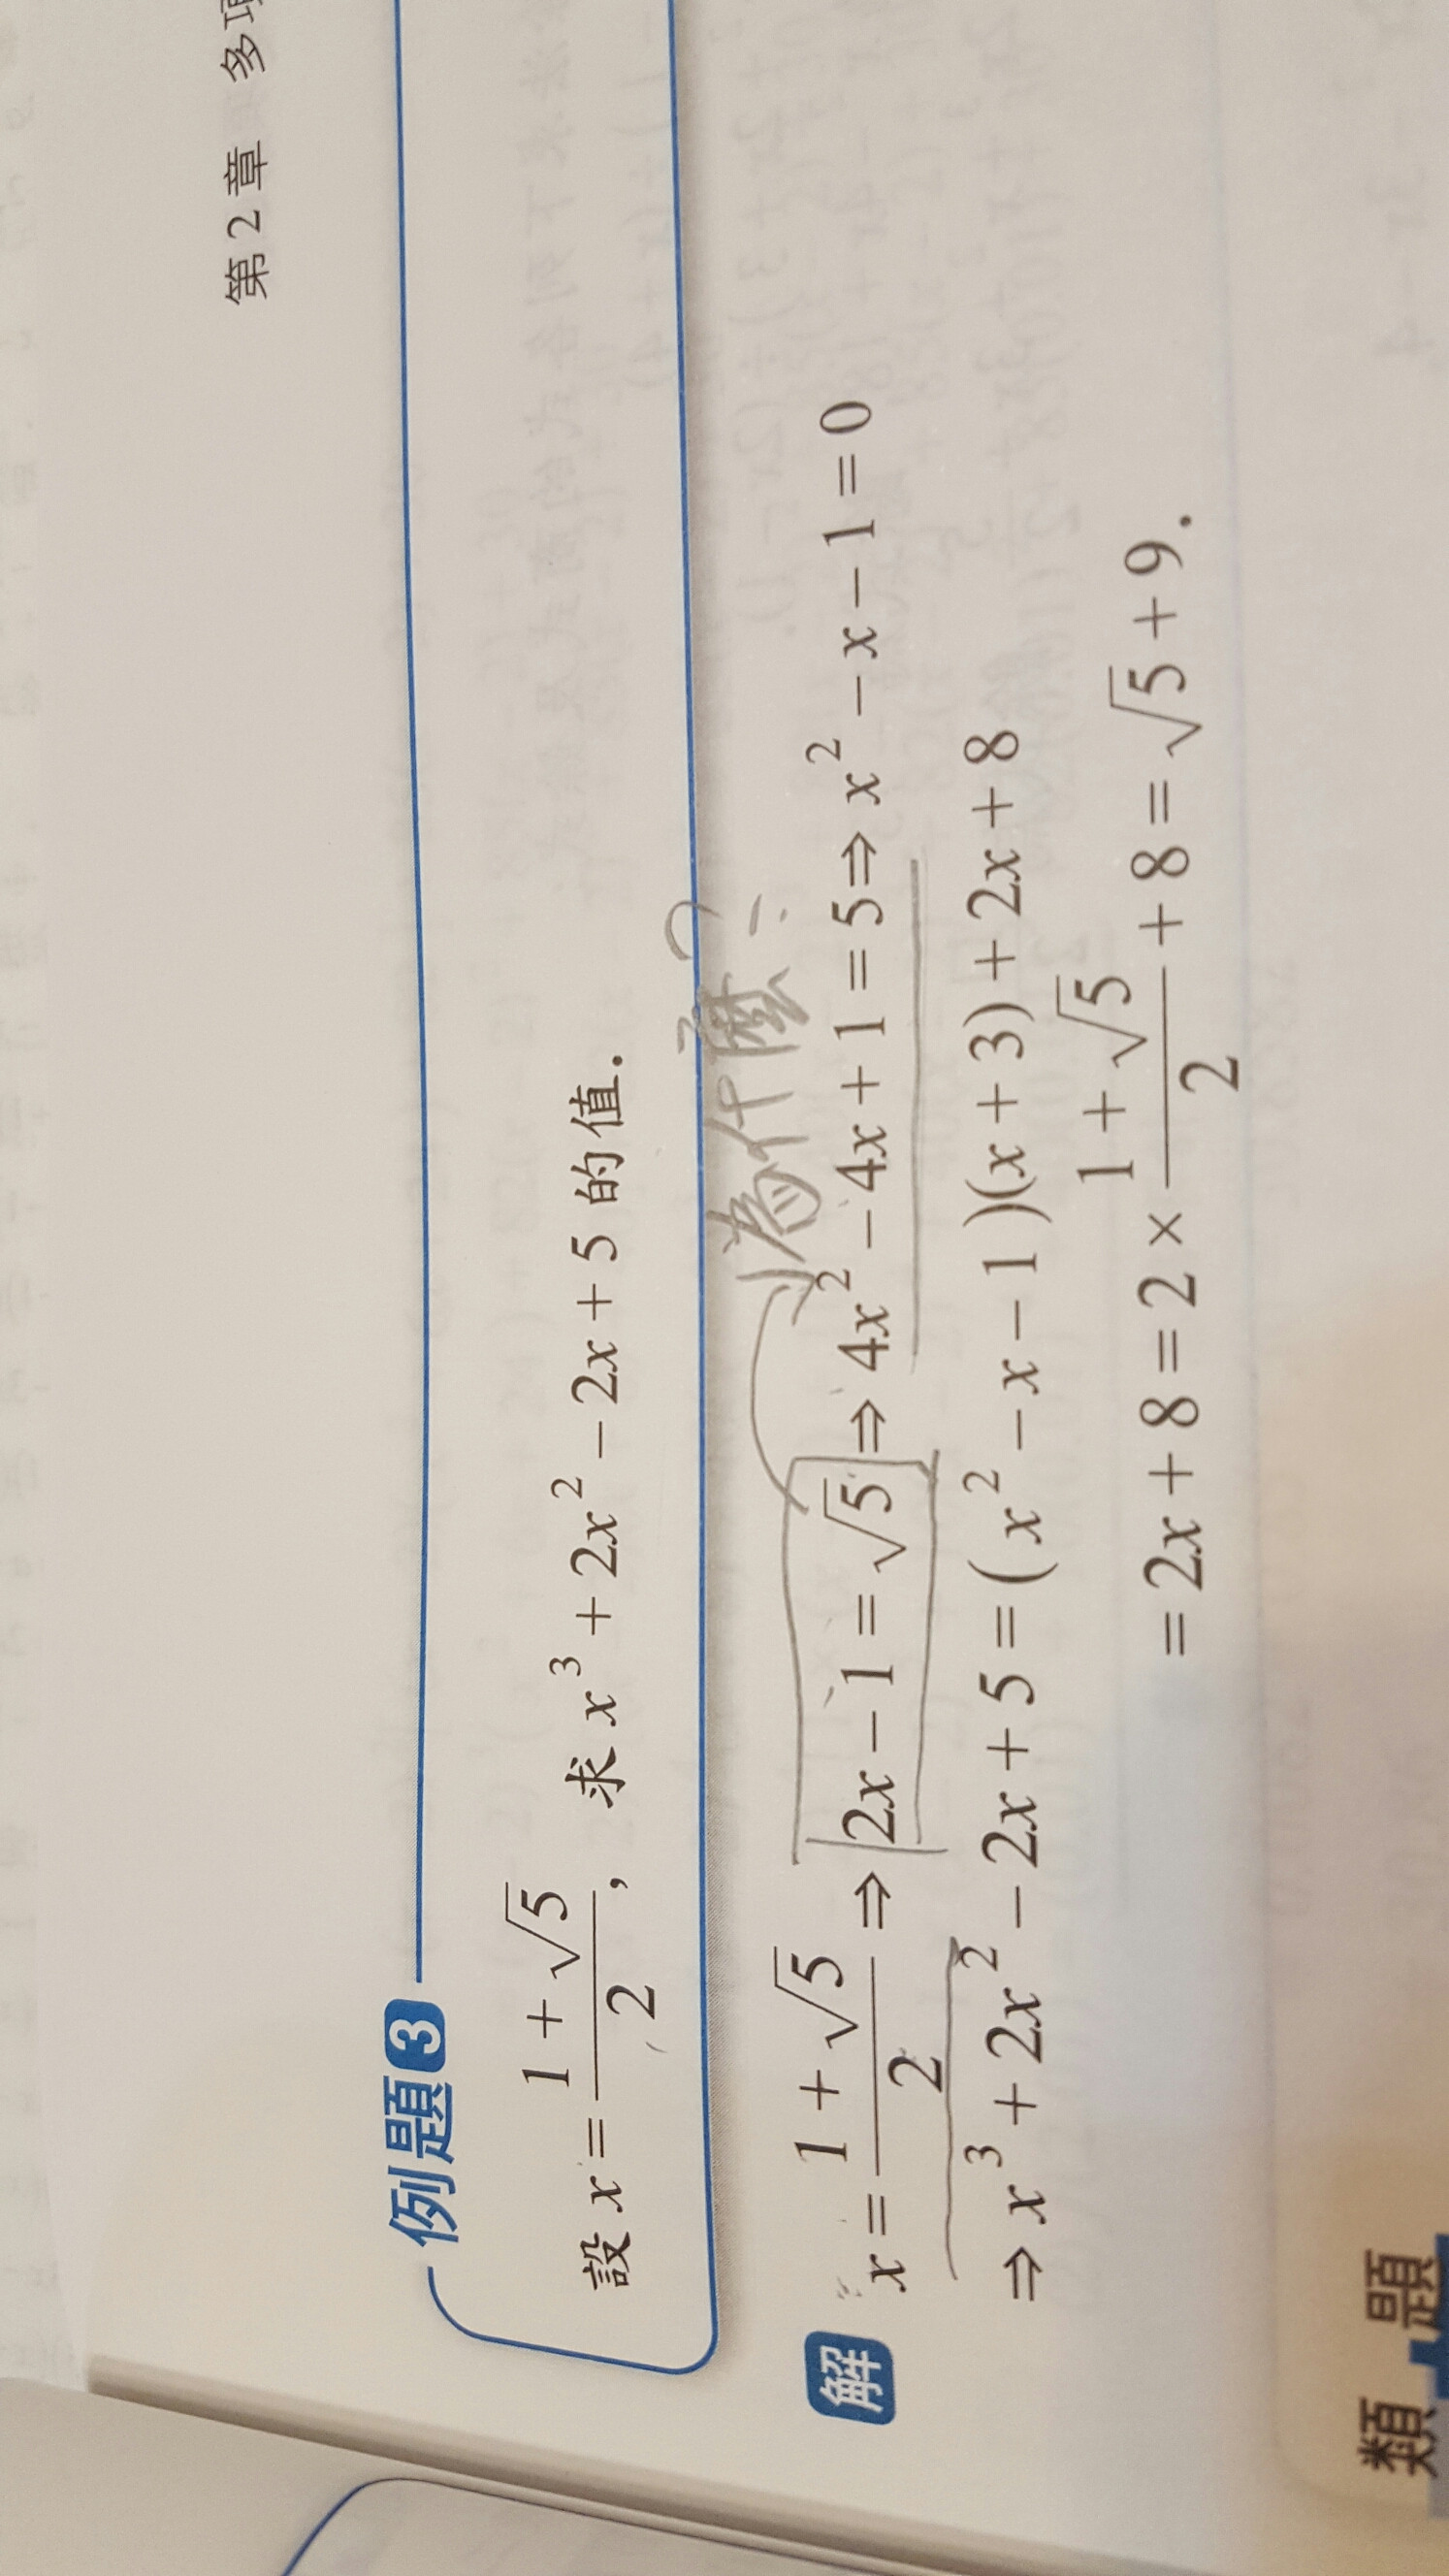 第2章 多項
例題3
設 x = (1+√5)/2 , 求 x³ + 2x² − 2x + 5 的值.
為什麼?
解 x = (1+√5)/2 ⇒ 2x − 1 = √5 ⇒ 4x² − 4x + 1 = 5 ⇒ x² − x − 1 = 0
⇒ x³ + 2x² − 2x + 5 = ( x² − x − 1 )(x + 3) + 2x + 8
= 2x + 8 = 2 × (1+√5)/2 + 8 = √5 + 9.
類題